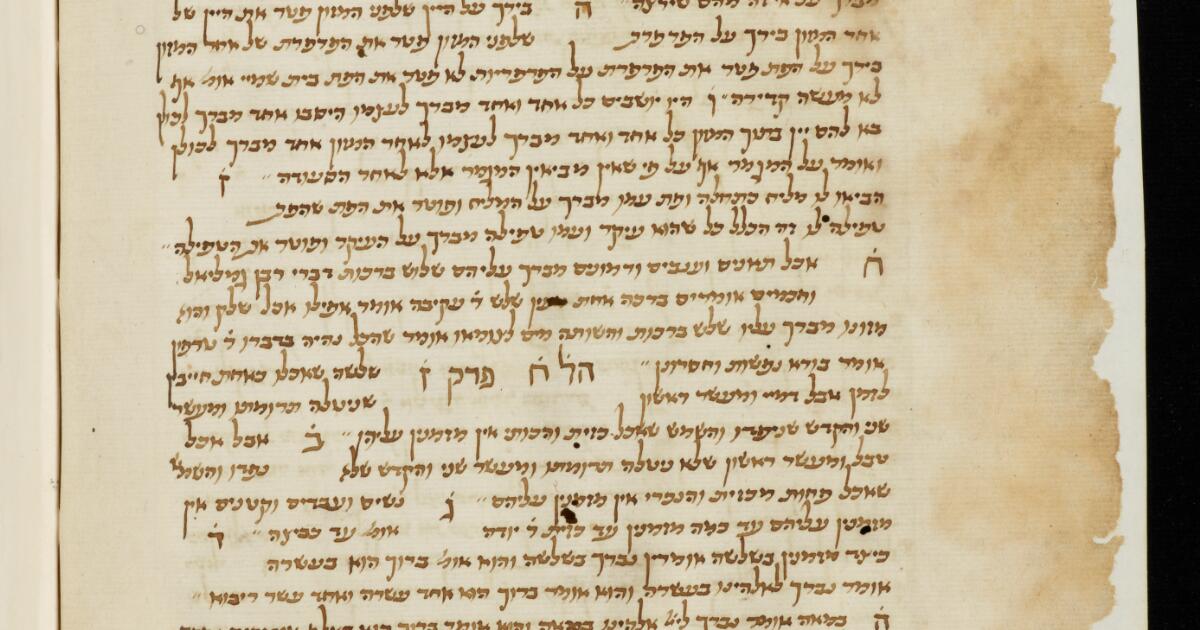 מברך על איזה מהם שירצה ״ ה בירך על היין שלפני המזון פטר את היין של
אחר המזון בירך על הפרפרת שלפני המזון פטר את הפרפרת של אחר המזון
בירך על הפת פטר את הפרפרת על הפרפריות לא פטר את הפת בית שמיי אומ׳ אף
לא מעשה קדירה ״ ו היו יושבים כל אחד ואחד מברך לעצמו היסבו אחד מברך לכולן
בא להם יין בתוך המזון כל אחד ואחד מברך לעצמו לאחר המזון אחד מברך לכולן
ואומר על המוגמר אף על פי שאין מביאין המוגמר אלא לאחר הסעודה ״ ז
הביאו לו מליח כתחלה ופת עמו מברך על המליח ופוטר את הפת שהפת
טפילה לו זה הכלל כל שהוא עיקר ועמו טפילה מברך על העיקר ופוטר את הטפילה ״
ח אכל תאנים וענבים ורמונים מברך עליהם שלוש ברכות דברי רבן גמליאל
וחכמים אומרים ברכה אחת מעין שלש ר׳ עקיבה אומר אפילו אכל שלק והוא
מזונו מברך עליו שלש ברכות והשותה מים לצומאו אומר שהכל נהיה בדברו ר׳ טרפון
אומר בורא נפשות וחסרונן ״ הל׳ ח פרק ז שלשה שאכלו כאחת חייבין
לזמן אכל דמיי ומעשר ראשון שניטלה תרומתו ומעשר
שני והקדש שניפדו והשמש שאכל כזית והכותי אין מזמנין עליהן ״ ב אבל אכל
טבל ומעשר ראשון שלא ניטלה תרומתו ומעשר שני והקדש שלא נפדו והשמש
שאכל פחות מכזית והנכרי אין מזמנין עליהם ״ ג נשים ועבדים וקטנים אין
מזמנין עליהם עד כמה מזמנין עד כזית ר׳ יודה אומ׳ עד כביצה ״ ד
כיצד מזמנין בשלשה אומרין נברך בשלשה והוא אומ׳ ברוך הוא בעשרה
אומר נברך לאלהינו בעשרה והוא אומר ברוך הוא אחד עשרה ואחד עשר ריבוא ״
ה במאה אומר נברך לייי אלהינו במאה והוא אומר ברוך